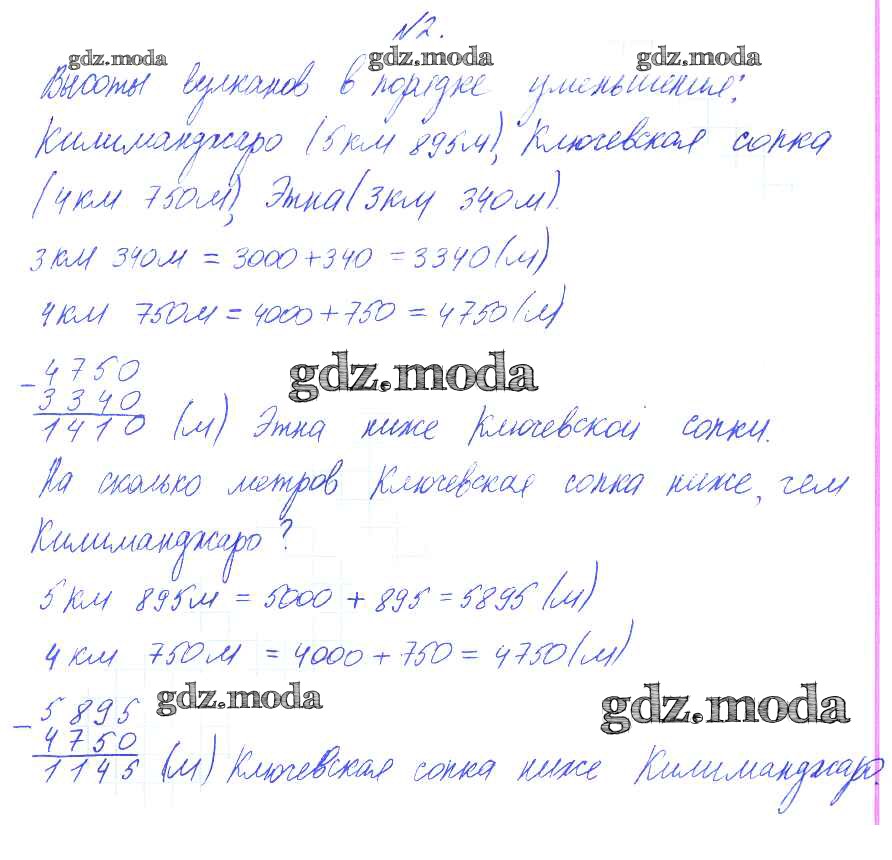 №2.
gdz.moda gdz.moda gdz.moda
Высоты вулканов в порядке уменьшения:
Килиманджаро (5км 895м), Ключевская сопка
(4км 750м), Этна (3км 340м).
3км 340м = 3000+340 = 3340(м)
4км 750м = 4000+750 = 4750(м)
gdz.moda
- 4750
3340
1410 (м) Этна ниже Ключевской сопки.
На сколько метров Ключевская сопка ниже, чем
Килиманджаро?
5км 895м = 5000 + 895 = 5895(м)
4км 750м = 4000+750 = 4750(м)
gdz.moda gdz.moda
- 5895
4750
1145 (м) Ключевская сопка ниже Килиманджаро.